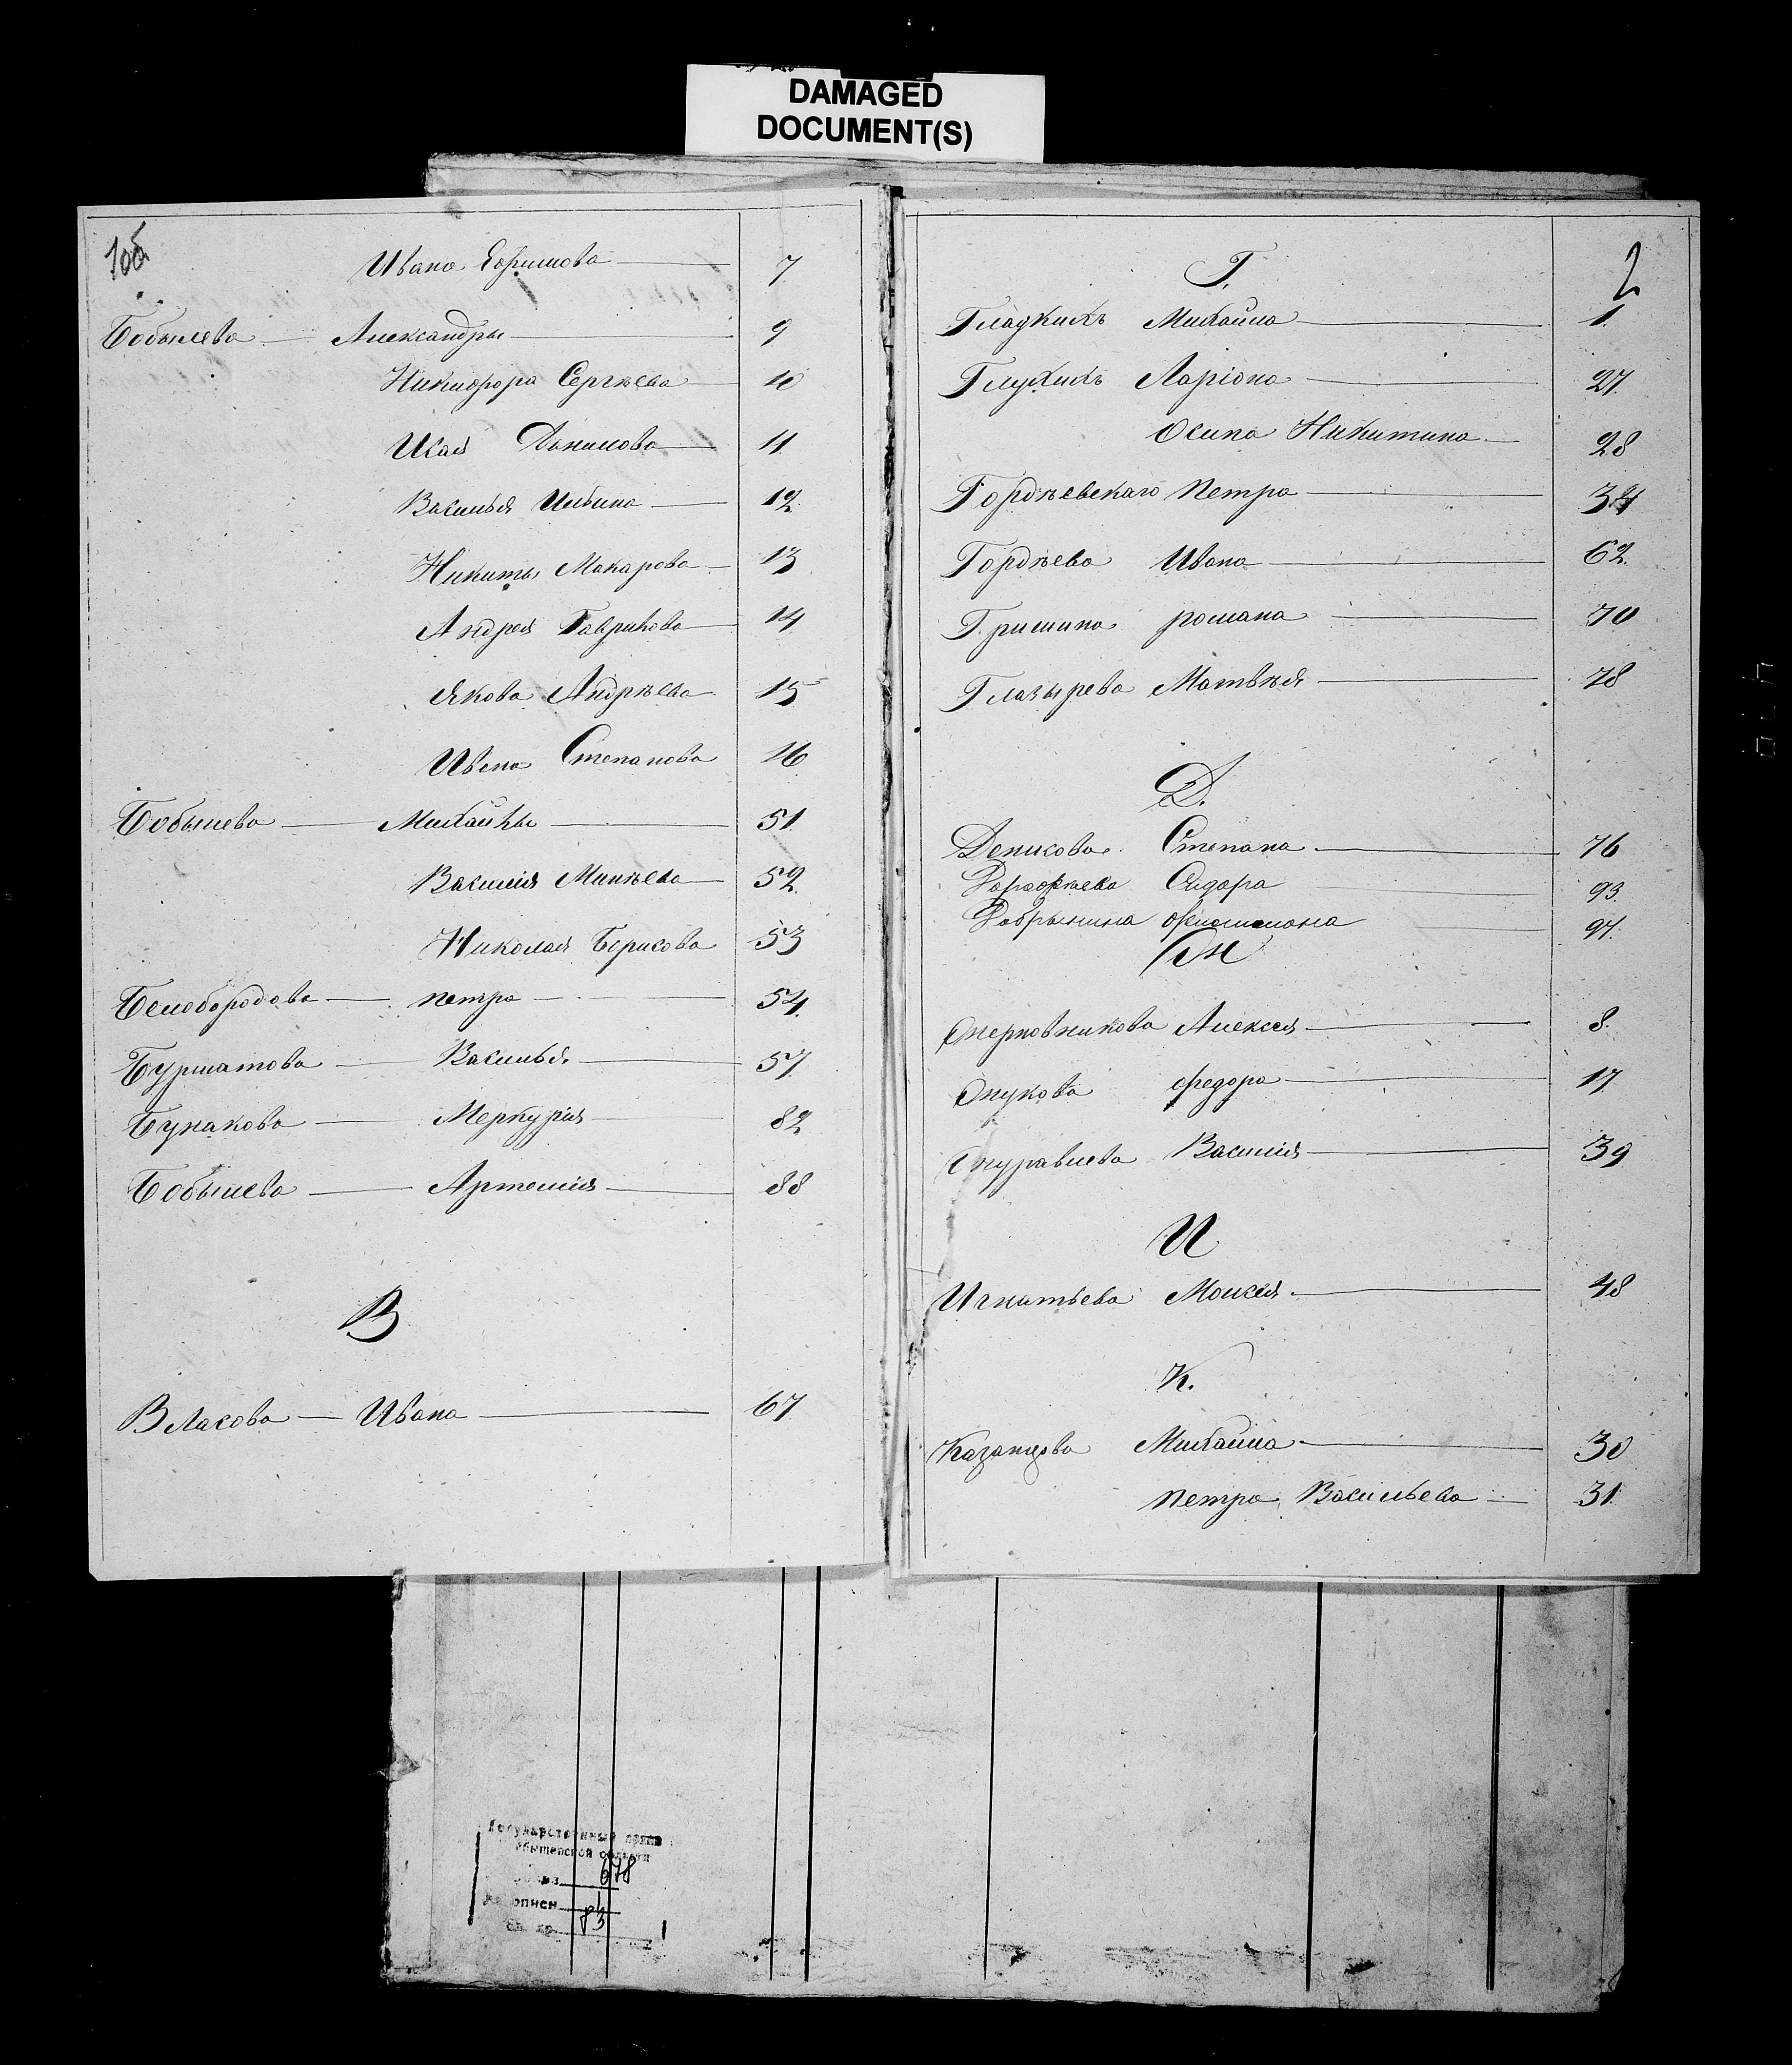 DAMAGED
DOCUMENT(S)
1об
Ивана Ефимова 7
Бобылева Александры 9
Никифора Сергѣева 10
Исая Данилова 11
Василья Ильина 12
Никиты Макарова 13
Андрея Гаврилова 14
Якова Андрѣева 15
Ивана Степанова 16
Бобылева Михайлы 51
Василія Минѣева 52
Николая Борисова 53
Белобородова петра 54
Бурматова Василья 57
Бунакова Меркурія 82
Бобылева Артемія 88
В
Власова Ивана 67
2
Г.
Гладкихъ Михайла 1.
Глухихъ Ларіона 27.
Осипа Никитина 28
Гордѣевскаго Петра
Гордѣева Ивана 62.
Гришина романа 70
Глазырева Матвѣя 78
Д.
Денисова Степана 76
Сидора 93.
Добрынина 97.
Ж
Жерновникова Алексея 8.
Жукова федора 17
Журавлева Василія 39
И
Игнатьева Моисея 48
К.
Казанцова Михайла 30
петра Васильева 31.
Государственный архив
области
678
описи
83
ед. хр.